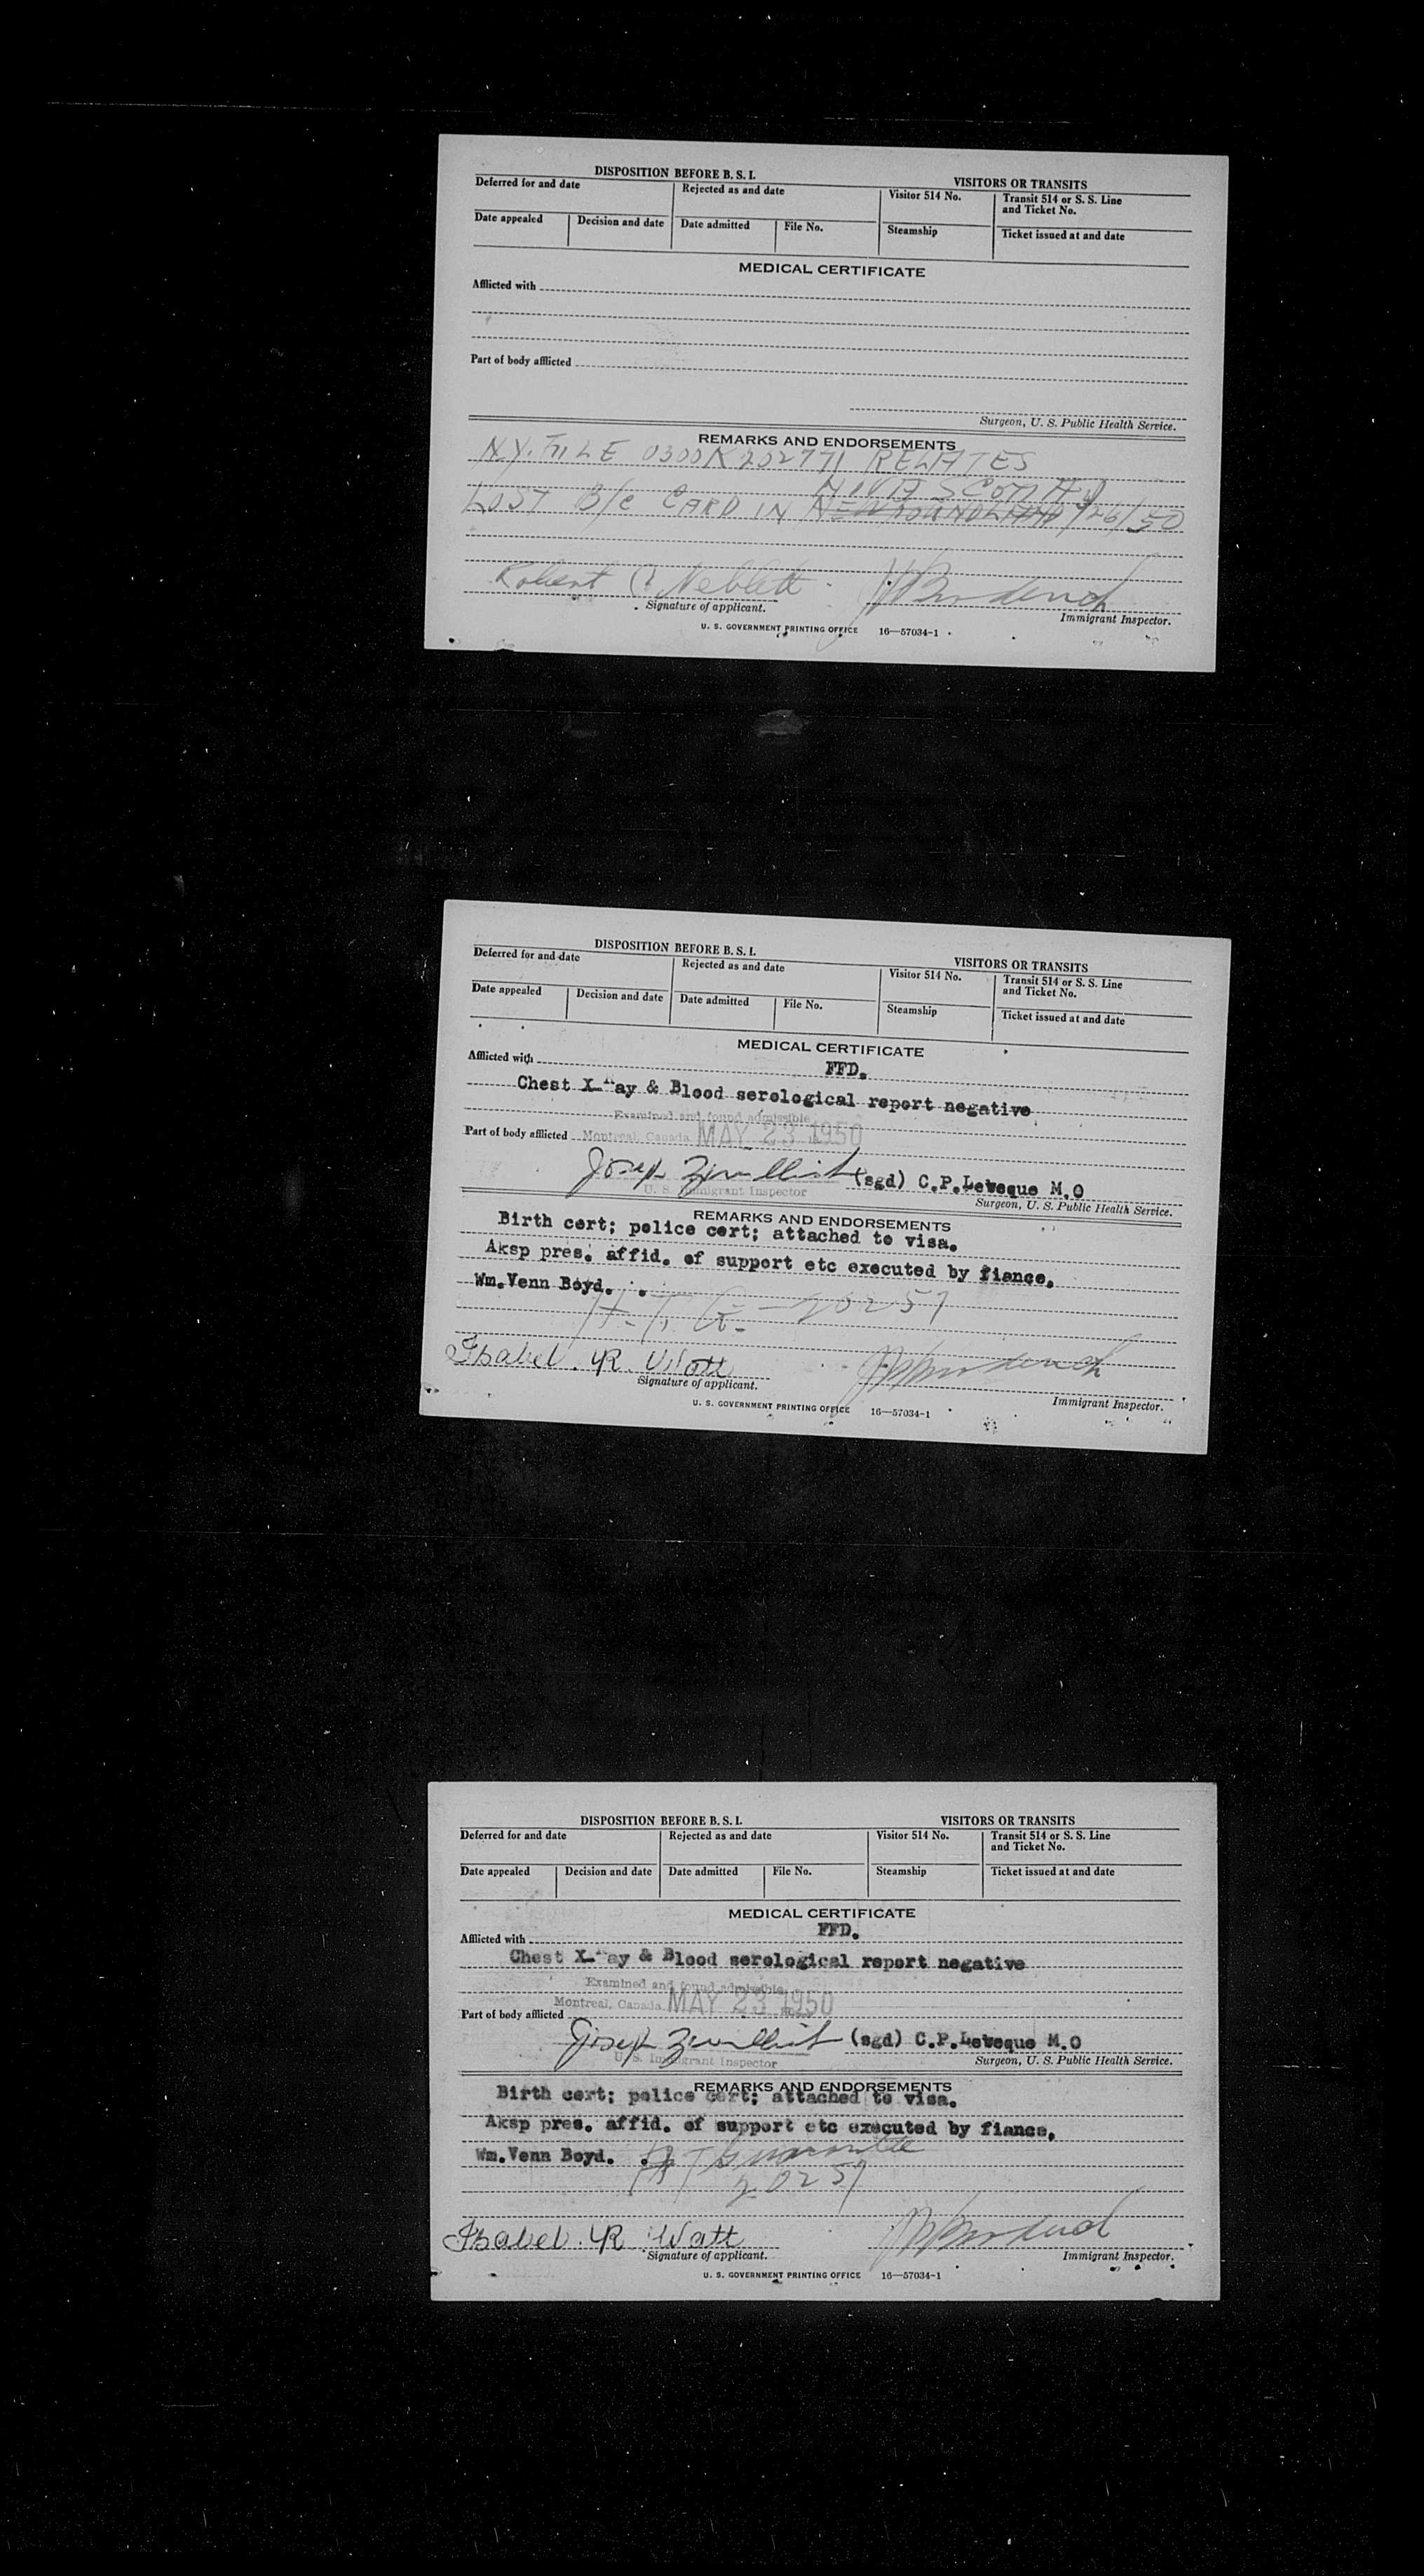 DISPOSITION BEFORE B. S. I. VISITORS OR TRANSITS
Deferred for and date Rejected as and date Visitor 514 No. Transit 514 or S. S. Line
and Ticket No.
Date appealed Decision and date Date admitted File No. Steamship Ticket issued at and date
MEDICAL CERTIFICATE
Afflicted with
Part of body afflicted
Surgeon, U. S. Public Health Service.
REMARKS AND ENDORSEMENTS
N.Y. FILE 0300K202771 RELATES
NOVA SCOTIA
LOST B/C CARD IN NEWFOUNDLAND 7/26/50
Robert Neblett
Signature of applicant. Immigrant Inspector.
U. S. GOVERNMENT PRINTING OFFICE 16—57034-1
DISPOSITION BEFORE B. S. I. VISITORS OR TRANSITS
Deferred for and date Rejected as and date Visitor 514 No. Transit 514 or S. S. Line
and Ticket No.
Date appealed Decision and date Date admitted File No. Steamship Ticket issued at and date
MEDICAL CERTIFICATE
Afflicted with FFD.
Chest X-Ray & Blood serological report negative
Examined and found admissible
Part of body afflicted Montreal, Canada MAY 23 1950
Joseph (sgd) C.P.Leveque M.O
U. S. Immigrant Inspector Surgeon, U. S. Public Health Service.
REMARKS AND ENDORSEMENTS
Birth cert; police cert; attached to visa.
Aksp pres. affid. of support etc executed by fiance,
Wm.Venn Boyd.
20257
Isabel. R. Watt
Signature of applicant. Immigrant Inspector.
U. S. GOVERNMENT PRINTING OFFICE 16—57034-1
DISPOSITION BEFORE B. S. I. VISITORS OR TRANSITS
Deferred for and date Rejected as and date Visitor 514 No. Transit 514 or S. S. Line
and Ticket No.
Date appealed Decision and date Date admitted File No. Steamship Ticket issued at and date
MEDICAL CERTIFICATE
Afflicted with FFD.
Chest X-Ray & Blood serological report negative
Examined and found admissible
Montreal, Canada MAY 23 1950
Part of body afflicted
Joseph (sgd) C.P.Leveque M.O
U. S. Immigrant Inspector Surgeon, U. S. Public Health Service.
REMARKS AND ENDORSEMENTS
Birth cert; police cert; attached to visa.
Aksp pres. affid. of support etc executed by fiance,
Wm.Venn Boyd.
20257
Isabel. R. Watt
Signature of applicant. Immigrant Inspector.
U. S. GOVERNMENT PRINTING OFFICE 16—57034-1